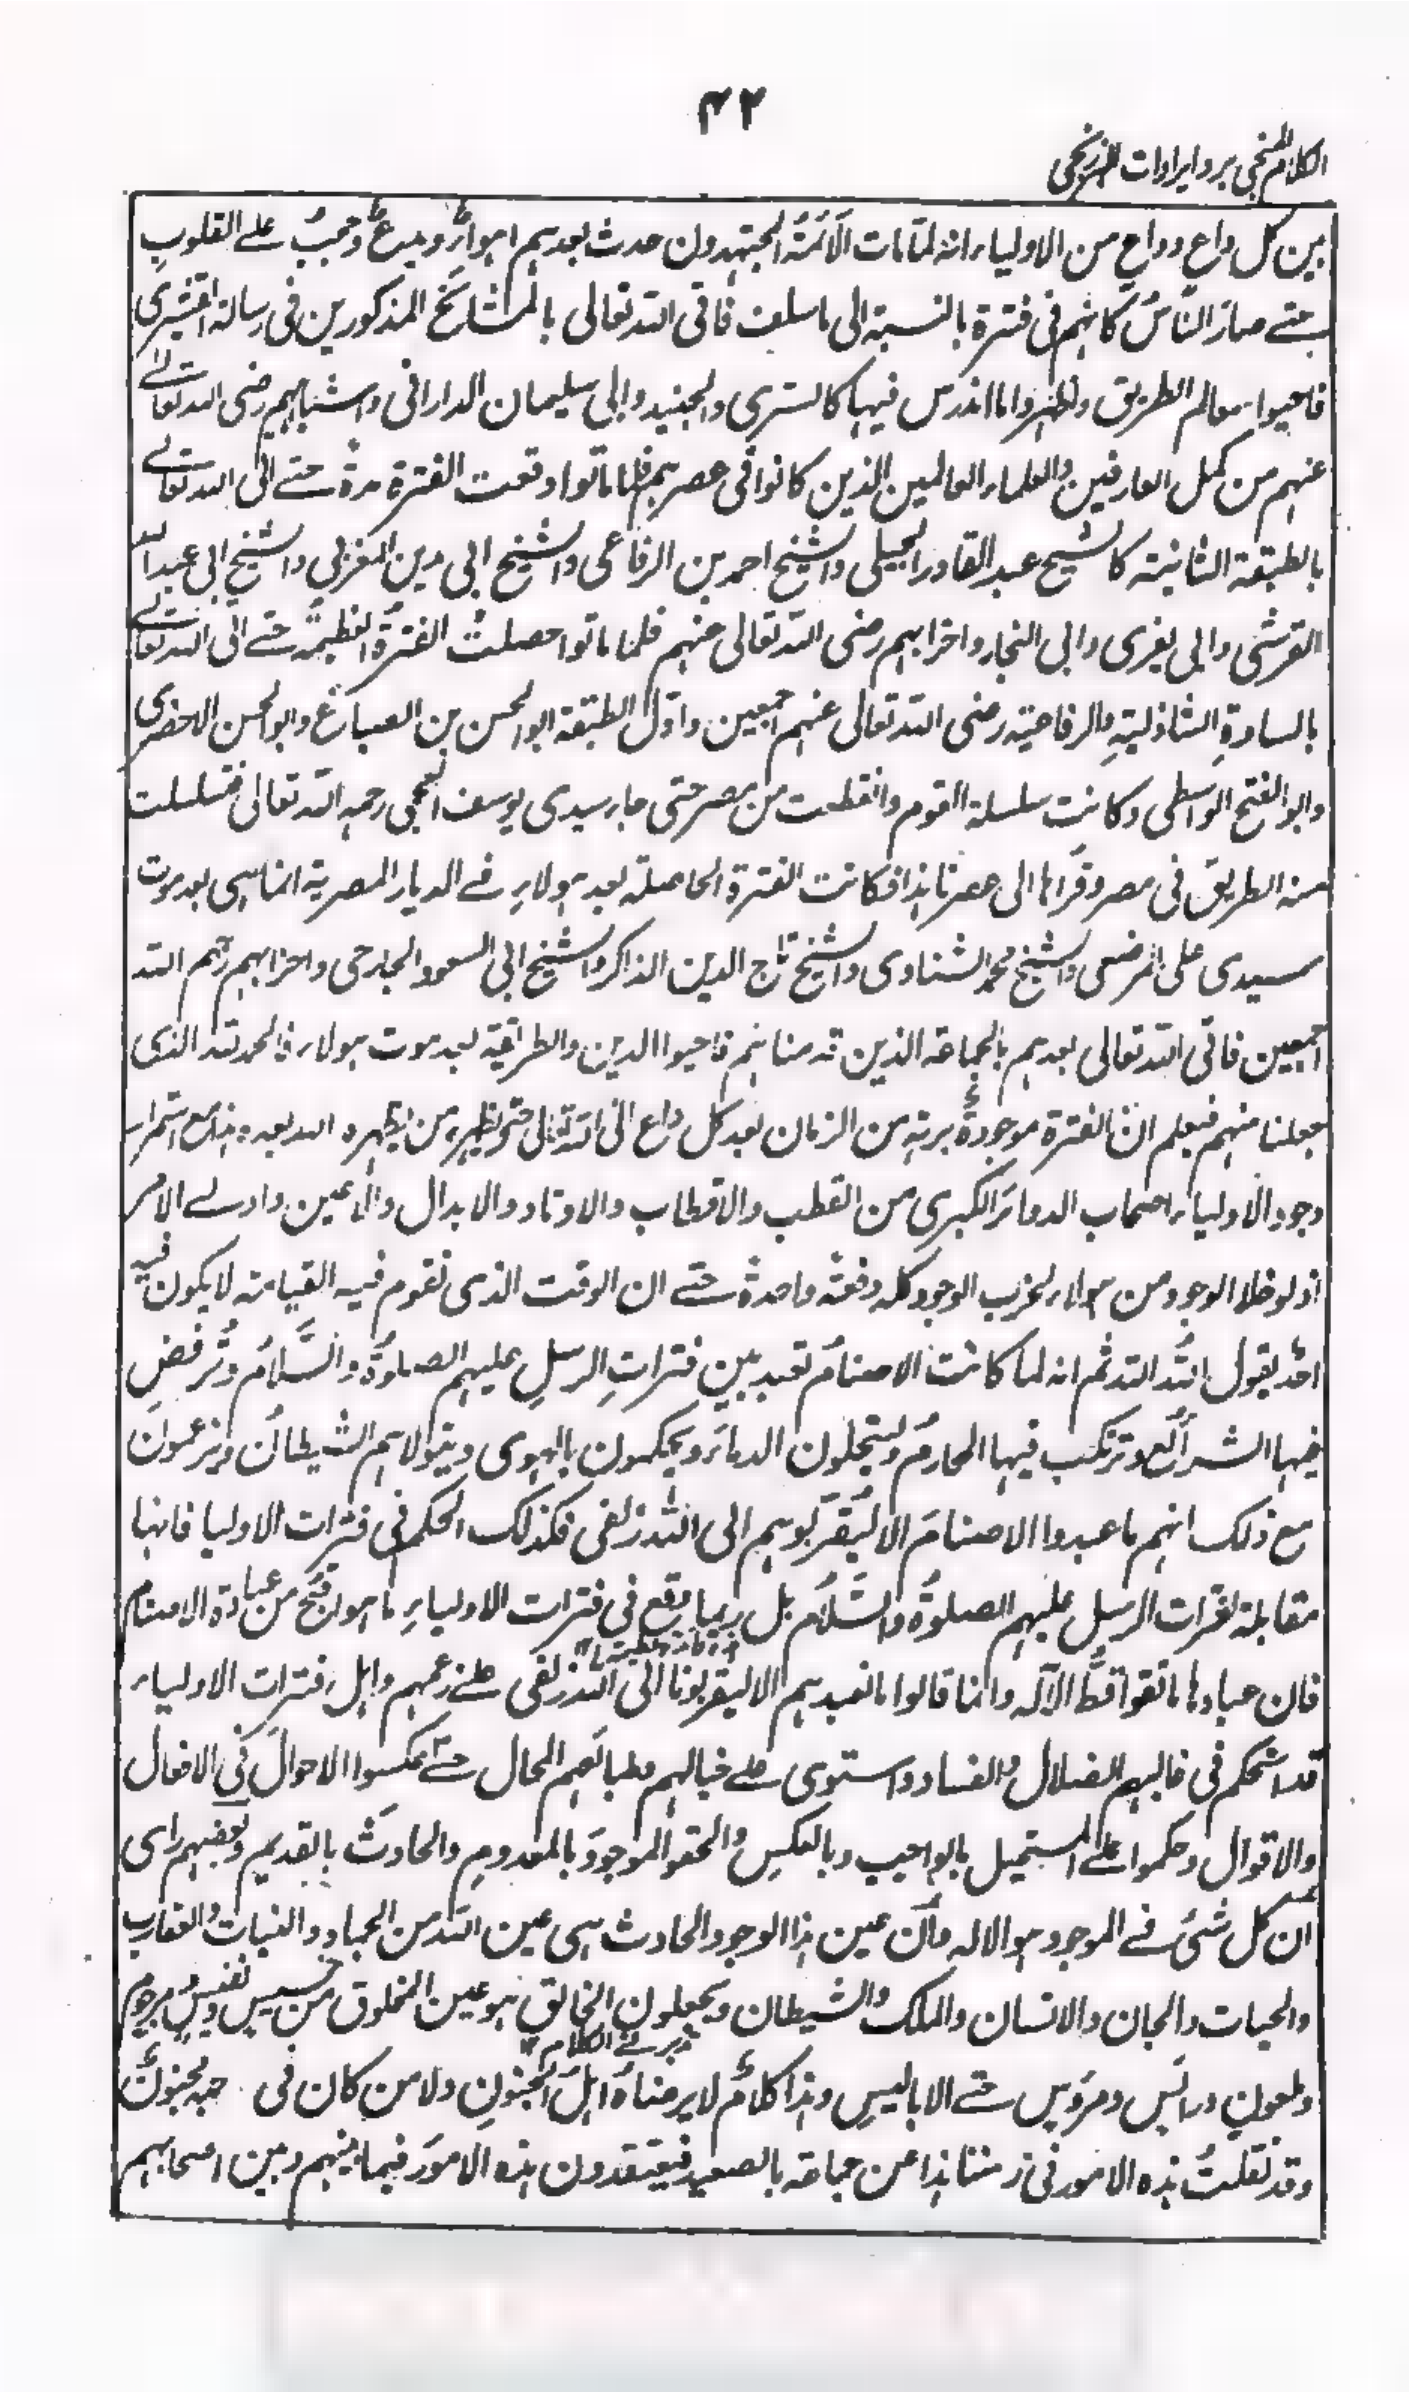 ۴۲
الكلام المنجى برد ايرادات البرزنجى
بين كل داع وداع من الاولياء انه لمّا مات الائمّة المجتهدون حدث بعدهم اهواءٌ وبدعٌ وحجبٌ على القلوبِ
حتے صار النّاسُ كانهم فى فترة بالنسبة الى ما سلف فاتى الله تعالى بالمشائخ المذكورين فى رسالة القشيرى
فاحيوا معالم الطريق واظهروا ما اندرس فيها كالسرى والجنيد وابى سليمان الدارانى واشباههم رضى الله تعالے
عنهم من كمل العارفين والعلماء العالمين الذين كانوا فى عصرهم فلما ماتوا وقعت الفترة مدةً حتے اتى الله تعالے
بالطبقة الثانية كالشيخ عبد القادر الجيلى والشيخ احمد بن الرفاعى والشيخ ابى مدين المغربى والشيخ ابى عبد الله
القرشى وابى يغرى وابى النجار واحزابهم رضى الله تعالى عنهم فلما ماتوا حصلت الفترة العظيمة حتے اتى الله تعالے
بالسادةِ الشاذليةِ والرفاعية رضى الله تعالى عنهم اجمعين واوّل الطبقة ابو الحسن بن الصباغ وابو الحسن الاخضرى
وابو الفتح الواسطى وكانت سلسلة القوم وانقطعت من مصر حتى جاء سيدى يوسف العجمى رحمه الله تعالى فتسلسلت
منه الطريق فى مصر وقراها الى عصرنا هذا فكانت الفترة الحاصلة بعد هولاءِ فے الديار المصرية انما هى بعد موت
سيدى على المرصفى والشيخ محمد الشناوى والشيخ تاج الدين الذاكر والشيخ ابى السعود الجارحى واحزابهم رحمهم الله
اجمعين فاتى الله تعالى بعدهم بالجماعة الذين قدمناهم فاحيوا الدين والطريقة بعد موت هولاء فالحمد لله الذى
جعلنا منهم فعلم انّ الفترة موجودةٌ برهة من الزمان بعد كل داع الى الله تعالى حتى يظهر من يظهره الله بعده هذا مع استمرار
وجود الاولياء اصحاب الدوائر الكبرى من القطب والاقطاب والاوتاد والابدال والاربعين واولے الامر
اذ لو خلا الوجود من هولاء لخرب الوجود كله دفعةً واحدةً حتے ان الوقت الذى تقوم فيه القيامة لا يكون فيه
احدٌ يقول الله الله ثم انه لما كانت الاصنامُ تعبد بين فتراتِ الرسلِ عليهم الصلوةُ والسَّلامُ وتُرفضِ
فيها الشرائعُ وترتكب فيها المحارمُ ويستحلون الدماءَ ويحكمون بالهوى ويتولاهم الشيطانُ ويزعمون
مع ذلك انهم ما عبدوا الاصنامَ الا ليُقرّبوهم الى الله زلفى فكذلك الحكم فى فترات الاوليا فانها
مقابلة لفترات الرسل عليهم الصلوةُ والسَّلامُ بل ربما وقع فى فترات الاولياءِ ما هو اقبح من عبادة الاصنام
فان عبادها ما تقوا قطُّ الآله وانما قالوا ما نعبدهم الا ليقربونا الى الله زلفى علے زعمهم واهل فترات الاولياء
قد استحكم فى غالبهم الضلال والفساد واستوى علے خيالهم وطبائعهم المحال حتے عكسوا الاحوال فى الافعال
والاقوال وحكموا علے المستحيل بالواجب وبالعكسِ والحقوا الموجودَ بالمعدومِ والحادثَ بالقديم وبعضهم راى
ان كل شئ فے الموجود هو الاله وان عين هذا الوجود الحادث هى عين الله من الجماد والنبات والعقارب
والحيات والجان والانسان والملك والشيطان ويجعلون الخالق هو عين المخلوق من خسيس ونفيس ومرجوم
وملعون ورائسٍ ومرؤس حتے الاباليسِ وهذا كلامٌ لا يرضاه اهل الجنون ولا من كان فى حبه مجنونٌ
وقد نقلتُ هذه الامور فى زمننا هذا عن جماعة بالصعيد فيعتقدون هذه الامور فيما بينهم وبين اصحابهم